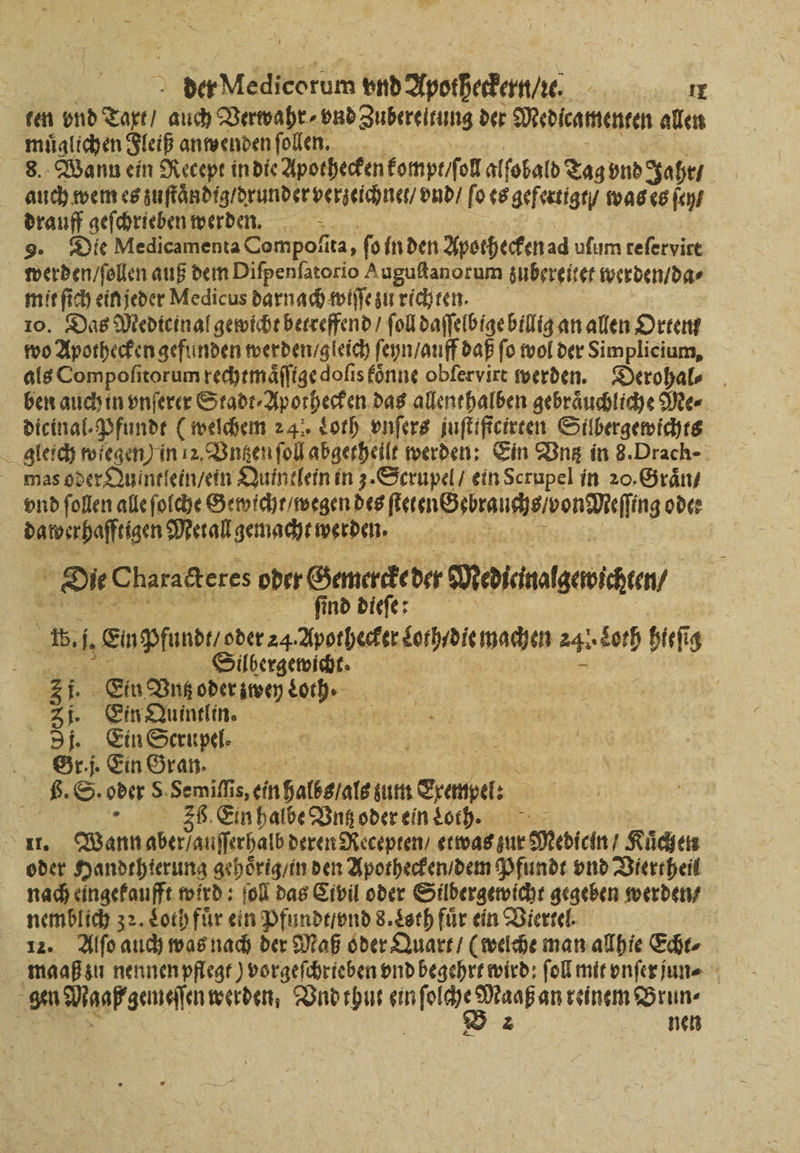 der Medicorum vnd Apotheckern/ꝛc. 11
ren vnd Taxt/ auch Verwahr- vnd Zubereitung der Medicamenten allen
müglichen Fleiß anwenden sollen.
8. Wann ein Recept in die Apothecken kompt/soll alsobald Tag vnd Jahr/
auch wem es zuständig/drunder verzeichnet/vnd/ so es gefertigt/ was es sey/
drauff geschrieben werden.
9. Die Medicamenta Composita, so in den Apothecken ad usum reservirt
werden/sollen auß dem Dispensatorio Augustanorum zubereitet werden/da-
mit sich ein jeder Medicus darnach wisse zu richten.
10. Das Medicinal gewicht betreffend/ soll dasselbige billig an allen Orten/
wo Apothecken gefunden werden/gleich seyn/auff daß so wol der Simplicium,
als Compositorum rechtmässige dosis könne observirt werden. Derohal-
ben auch in vnserer Stadt-Apothecken das allenthalben gebräuchliche Me-
dicinal-Pfundt (welchem 24½. Loth vnsers justificirten Silbergewichts
gleich wiegen) in 12. Vntzen soll abgetheilt werden: Ein Vntz in 8. Drach-
mas oder Quintlein/ein Quintlein in 3. Scrupel/ ein Scrupel in 20. Grän/
vnd sollen alle solche Gewicht/wegen des steten Gebrauchs/von Messing oder
dawerhafftigen Metall gemacht werden.
Die Characteres oder Gemercke der Medicinalgewichten/
sind diese:
℔. j. Ein Pfundt/oder 24. Apothecker Loth/die machen 24½. Loth hiesig
Silbergewicht.
℥ j. Ein Vntz oder zwey Loth.
ʒ j. Ein Quintlin.
℈ j. Ein Scrupel.
Gr. j. Ein Gran.
ß. S. oder S Semissis, ein halbs/als zum Exempel:
℥ß. Ein halbe Vntz oder ein Loth.
11. Wann aber/ausserhalb deren Recepten/ etwas zur Medicin/ Küchen
oder Handthierung gehörig/in den Apothecken/dem Pfundt vnd Viertheil
nach eingekaufft wird: soll das Civil oder Silbergewicht gegeben werden/
nemblich 32. Loth für ein Pfundt/vnd 8. Loth für ein Viertel.
12. Also auch was nach der Maß oder Quart/ (welche man allhie Echt-
maaß zu nennen pflegt) vorgeschrieben vnd begehrt wird: soll mit vnser jun-
gen Maaß gemessen werden, Vnd thut ein solche Maaß an reinem Brun-
B 2 nen